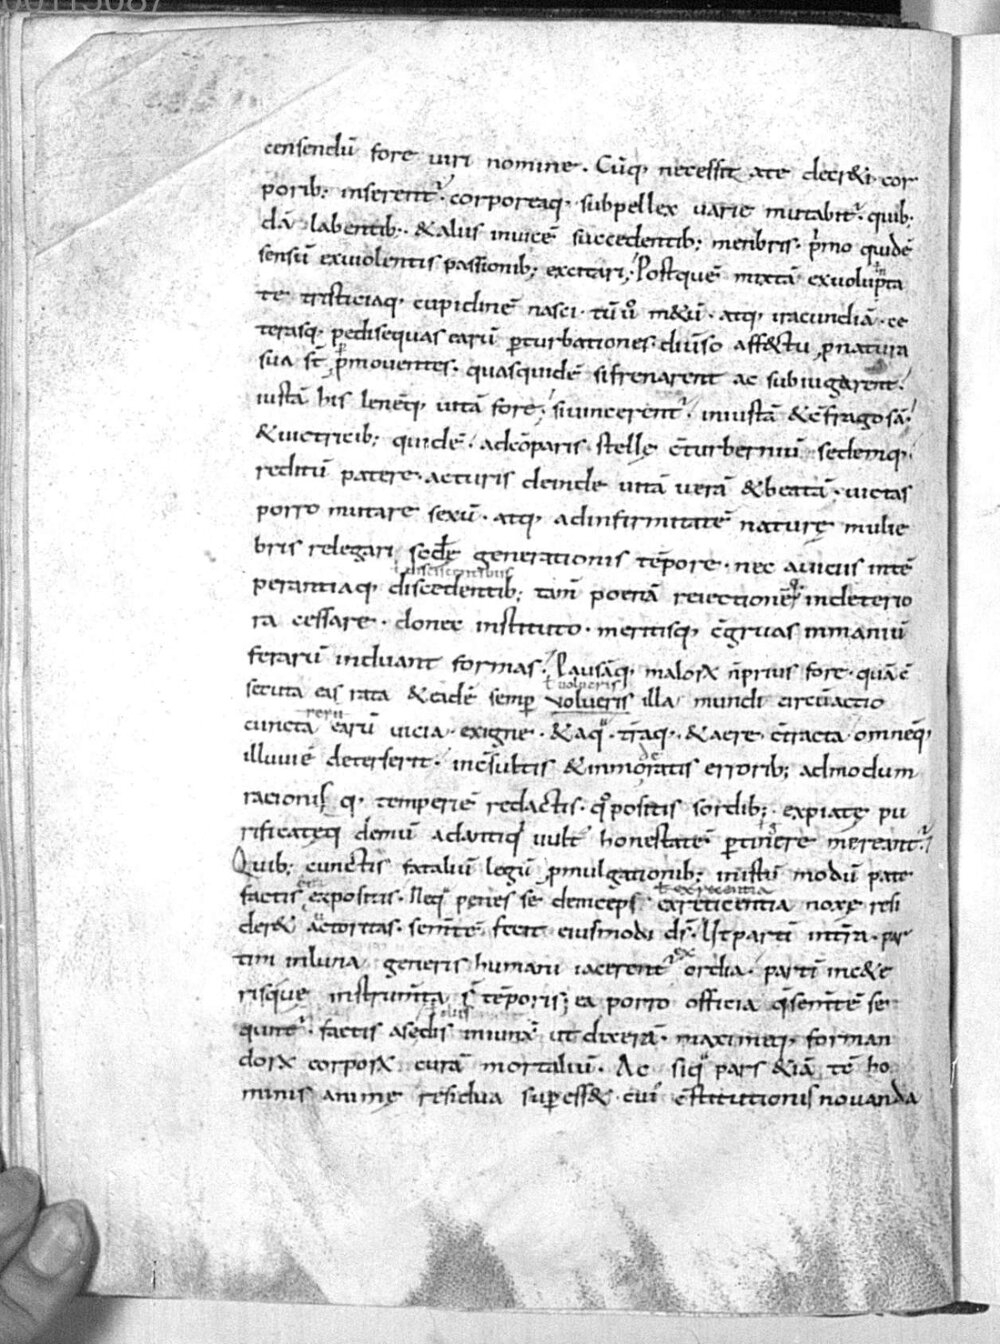 00113087
censendū fore uiri nomine. Cūq; necessitate decr&i cor
porib; inserent᷒. corporeaq; subpellex uarie mutabit᷒. quib;
dā labentib;. &aliis inuicē succedentib; membris. p̍mo quidē
sensū exuiolentis passionib; excitari; Postquē mixtā exuolupta
te tristiciaq; cupidinē nasci. tū u̍o m&ū. atq; iracundiā. ce
terasq; pedisequas earū p̱turbationes. diu̅so aff&tu ꝓnatura
sua st̄ p̱mouentes. quasquidē sifrenarent ac subiugarent.
iustā his lenēq; uitā fore; siuincerent᷒. iniustā &c̄fragosā.
&uictricib; quidē. adcōparis stellę c̄turberniū sedemq;
reditū patere. acturis deinde uitā uerā &beatā. uictas
porro mutare sexū. atq; adinfirmitatē naturę mulie
bris relegari sedę generationis tēpore. nec auicus intē
ł disciscentibus
perantiaq; discedentib; tam̄ poenā reiectionēq; indeterio
ra cessare. donec instituto. meritisq; c̄gruas inmaniū
ferarū induant formas. Pausāq; malorꝝ n̄prius fore. quā c̄
ł uolucris
secuta eas rata &eadē semꝑ uolueris illa mundi circūactio
rerū
cuncta earū uicia. exigne. &aq̄. tr̄aq;. &aere. c̄tracta omnēq;
illuuiē deterserit. inc̄sultis &inmoderatis errorib; admodum
racionis q; temperiē redactis. q̊positis sordib;. expiatę pu
rificatęq; demū adantiq̍ uult᷒ honestatē p̱tin̅ere mereant᷒.
Quib; cunctis fataliū legū ꝓmulgationib; iniustū modū pate
ł exrecentia
factis expositis. Neq; penes se deinceps exreticentia noxę resi
der& actoritas. sem̄tē fecit eiusmodi dr̄. Ut partī int̄ra. par
tim inluna generis humani iacerent᷒ exordia. partī inc&e
risque instrum̄ta st̄ tēporis; ea porro officia q̄sem̄tē se
quunt᷒. factis asedis iniunx̄ ut dixerā. maximeq; forman
dorꝝ corporꝝ curā mortaliū. Ac siq̄ pars &iā tē ho
minis animę residua suꝑess&. cui c̄stitutionis nouanda